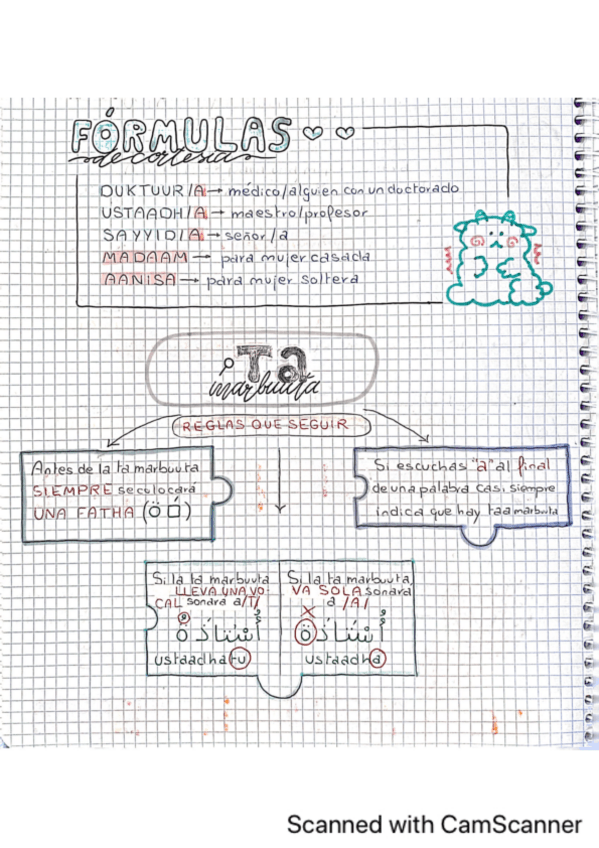 FÓRMULAS
de cortesías
DUKTUUR/A → médico/alguien con un doctorado
USTAADH/A → maestro/profesor
SAYYID/A → señor/a
MADAAM → para mujer casada
AANISA → para mujer soltera
Ta
marbuuta
REGLAS QUE SEGUIR
Antes de la ta marbuuta
SIEMPRE se colocará
UNA FATHA (ö َ□)
Si escuchas "a" al final
de una palabra casi siempre
indica que hay taa marbuta
Si la ta marbuuta
LLEVA UNA VO-
CAL sonará a/T/
أُسْتَاذَةُ
ustaadhatu
Si la ta marbuuta
VA SOLA sonará
a /A/
X
أُسْتَاذَة
ustaadha
Scanned with CamScanner